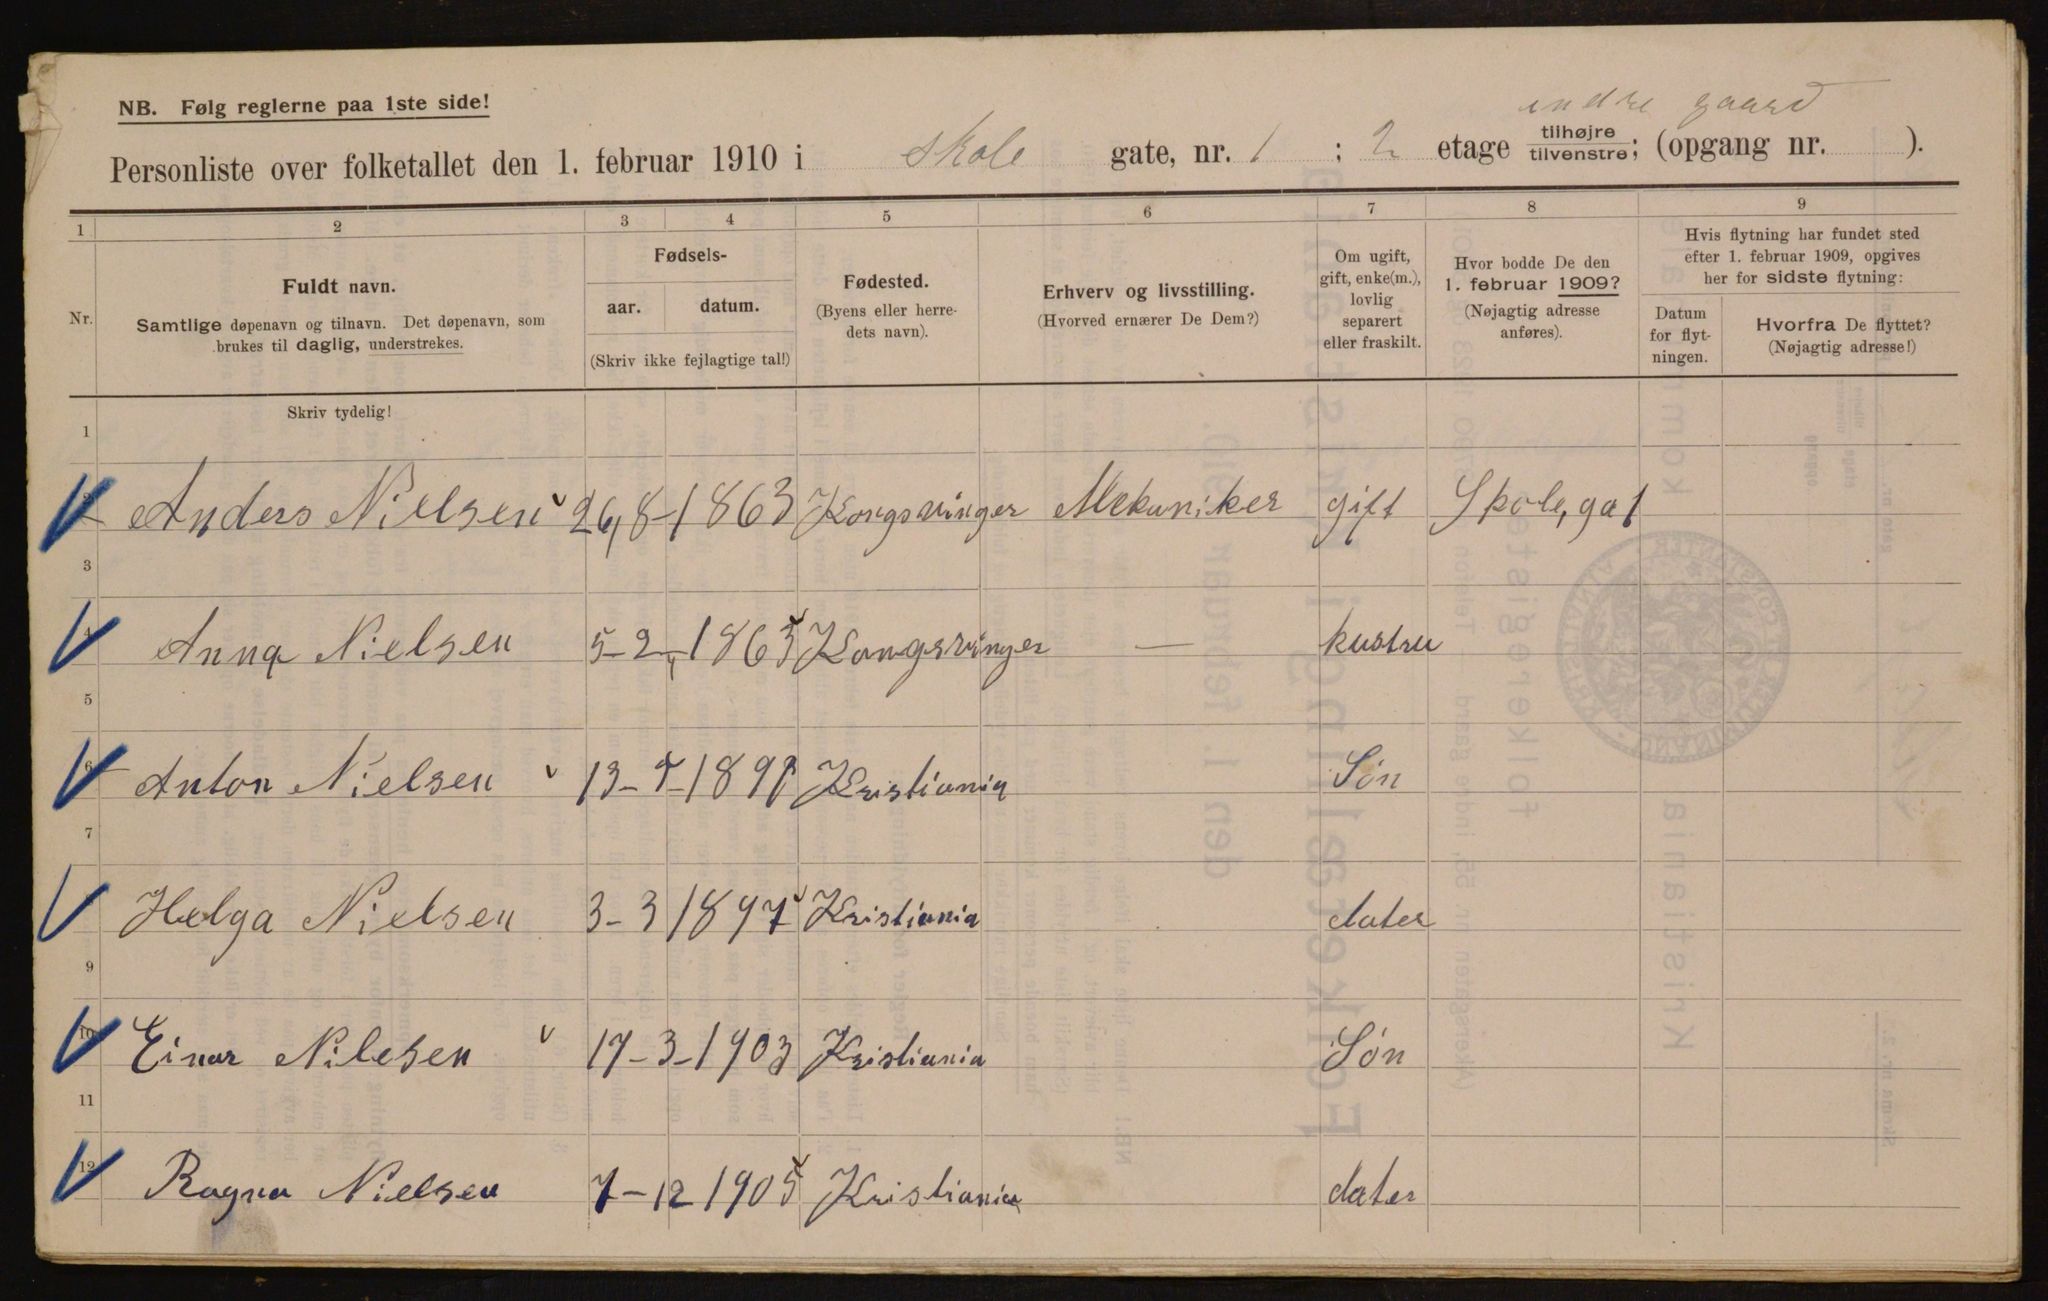 NB. Følg reglerne paa 1ste side!
indre gaard
Personliste over folketallet den 1. februar 1910 i Skole gate, nr. 1 ; 2 etage tilhøjre tilvenstre; (opgang nr. ).
1 2 3 4 5 6 7 8 9
Nr.
Fuldt navn.
Samtlige døpenavn og tilnavn. Det døpenavn, som
brukes til daglig, understrekes.
Fødsels-
aar. datum.
(Skriv ikke fejlagtige tal!)
Fødested.
(Byens eller herre-
dets navn).
Erhverv og livsstilling.
(Hvorved ernærer De Dem?)
Om ugift,
gift, enke(m.),
lovlig
separert
eller fraskilt.
Hvor bodde De den
1. februar 1909?
(Nøjagtig adresse
anføres).
Hvis flytning har fundet sted
efter 1. februar 1909, opgives
her for sidste flytning:
Datum
for flyt-
ningen.
Hvorfra De flyttet?
(Nøjagtig adresse!)
Skriv tydelig!
1
2 Anders Nielsen 26,8-1863 Kongsvinger Mekaniker gift Skole,ga 1
3
4 Anna Nielsen 5-2,-1865 Kongsvinger — hustru
5
6 Anton Nielsen 13- Kristiania Søn
7
Helga Nielsen 3-3 1897 Kristiania dater
9
10 Einar Nilesen 17-3-1903 Kristiania Søn
11
12 Ragna Nielsen 7-12 1905 Kristiania dater